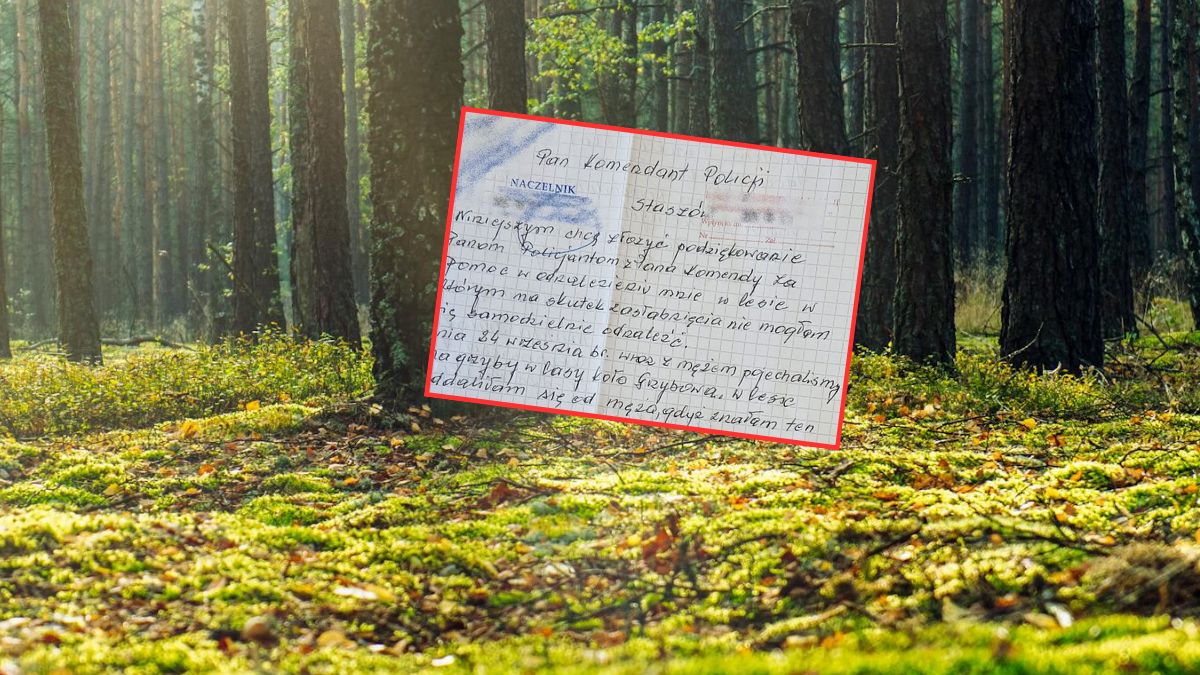 Pan Komendant Policji
NACZELNIK
Staszów
Niniejszym chcę złożyć podziękowanie
Panom Policjantom z Pana Komendy za
pomoc w odnalezieniu mnie w lesie w
którym na skutek zasłabnięcia nie mogłam
się samodzielnie odnaleźć.
nia 24 września br. wraz z mężem pojechaliśmy
na grzyby w lasy koło Grzybowa, w lesie
oddaliłam się od męża, gdyż znałam ten